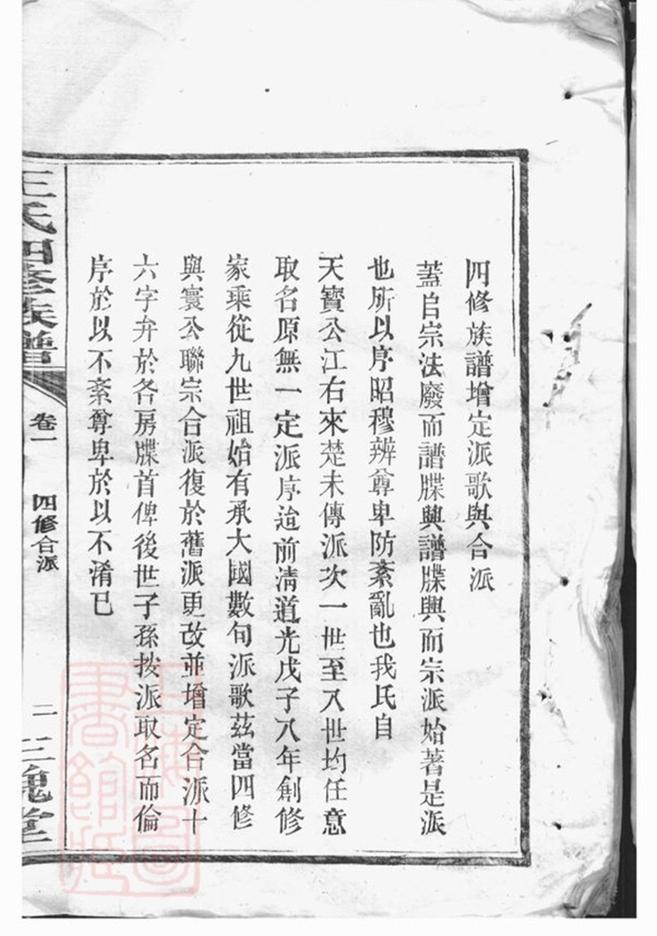 四修族譜增定派歌與合派
蓋自宗法廢而譜牒興譜牒興而宗派始著是派
也所以序昭穆辨尊卑防紊亂也我氏自
天寳公江右來楚未傳派次一世至入世均任意
取名原無一定派序迨前清道光戊子八年創修
家乘從九世祖始有承大國數句派歌茲當四修
與寰公聯宗合派復於舊派更改並增定合派十
六字弁於各房牒首俾後世子孫按派取名而倫
序於以不紊尊卑於以不淆已
王氏四修族譜
卷一
四修合派
二
三槐堂
上海圖書館藏